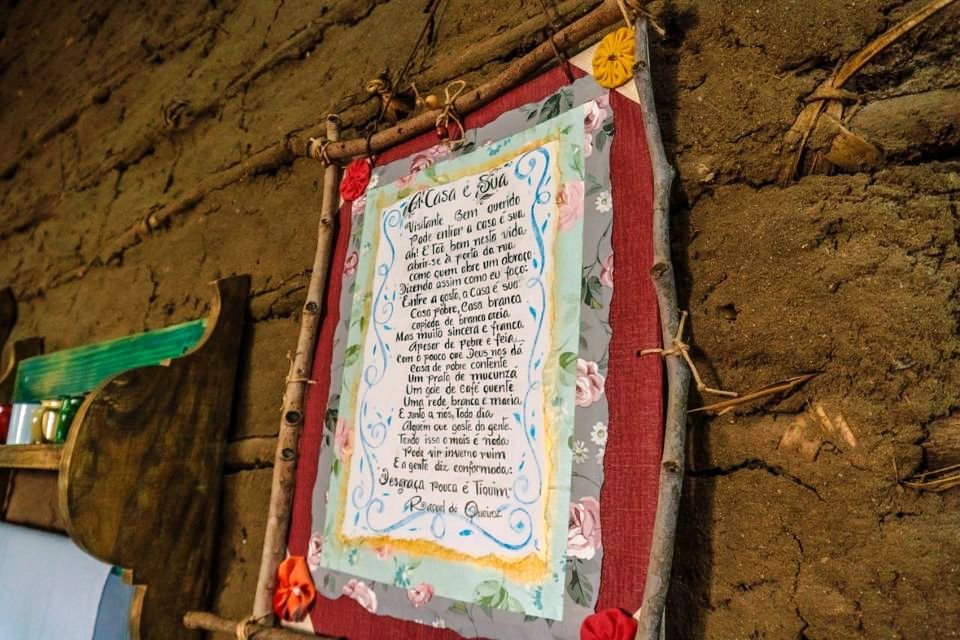 A Casa é Sua
Visitante Bem querido
Pode entrar a casa é sua
ah! É tão bom nesta vida
abrir-se à porta da rua
como quem abre um abraço
Dizendo assim como eu faço:
Entre a gosto, a Casa é sua
Casa pobre, Casa branca
caiada de branca areia
Mas muito sincera e franca
Apesar de pobre e feia...
com o pouco que Deus nos dá
Casa de pobre contente
Um prato de mucunzá
Um gole de café quente
Uma rede branca e macia
E junto a nós, Todo dia
Alguém que goste da gente.
Tendo isso o mais é nada
Pode vir inverno ruim
E a gente diz conformada:
Desgraça pouca é Tiquim
Raquel de Queiroz